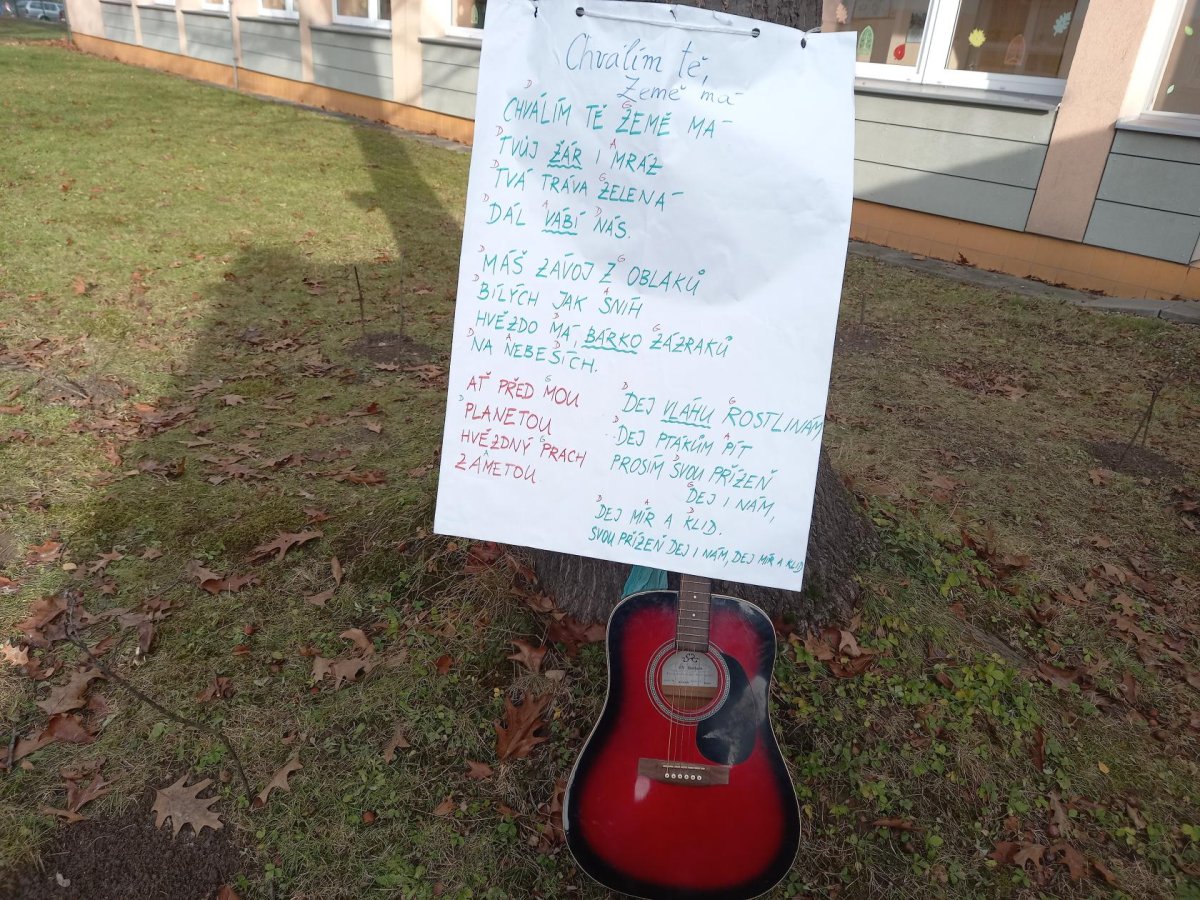 Chválím tě,
Země má
CHVÁLÍM TĚ ZEMĚ MÁ
TVŮJ ŽÁR I MRÁZ
TVÁ TRÁVA ZELENÁ
DÁL VÁBÍ NÁS.
MÁŠ ZÁVOJ Z OBLAKŮ
BÍLÝCH JAK SNÍH
HVĚZDO MÁ, BÁRKO ZÁZRAKŮ
NA NEBESÍCH.
AŤ PŘED MOU
PLANETOU
HVĚZDNÝ PRACH
ZAMETOU
DEJ VLÁHU ROSTLINÁM
DEJ PTÁKŮM PÍT
PROSÍM SVOU PŘÍZEŇ
DEJ I NÁM,
DEJ MÍR A KLID.
SVOU PŘÍZEŇ DEJ I NÁM, DEJ MÍR A KLID